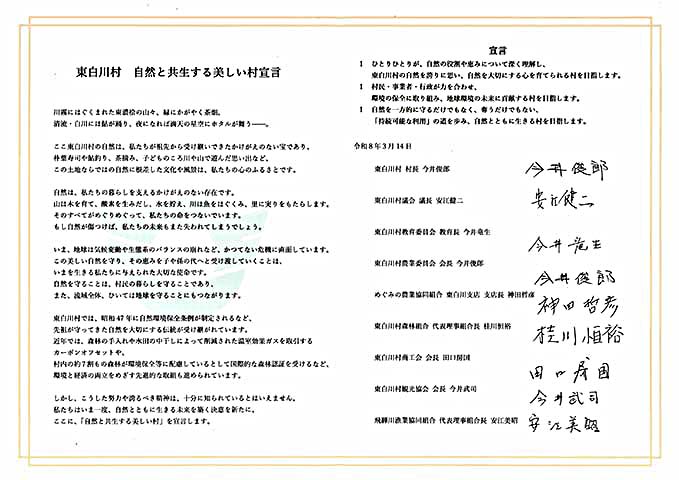 東白川村　自然と共生する美しい村宣言
川霧にはぐくまれた東濃桧の山々、緑にかがやく茶畑。
清流・白川には鮎が踊り、夜になれば満天の星空にホタルが舞う――。
ここ東白川村の自然は、私たちが祖先から受け継いできたかけがえのない宝であり、
朴葉寿司や鮎釣り、茶摘み、子どものころ川や山で遊んだ思い出など、
この土地ならではの自然に根差した文化や風景は、私たちの心のふるさとです。
自然は、私たちの暮らしを支えるかけがえのない存在です。
山は木を育て、酸素を生みだし、水を貯え、川は魚をはぐくみ、里に実りをもたらします。
そのすべてがめぐりめぐって、私たちの命をつないでいます。
もし自然が傷つけば、私たちの未来もまた失われてしまうでしょう。
いま、地球は気候変動や生態系のバランスの崩れなど、かつてない危機に直面しています。
この美しい自然を守り、その恵みを子や孫の代へと受け渡していくことは、
いまを生きる私たちに与えられた大切な使命です。
自然を守ることは、村民の暮らしを守ることであり、
また、流域全体、ひいては地球を守ることにもつながります。
東白川村では、昭和47年に自然環境保全条例が制定されるなど、
先祖が守ってきた自然を大切にする伝統が受け継がれています。
近年では、森林の手入れや水田の中干しによって削減された温室効果ガスを取引する
カーボンオフセットや、
村内の約7割もの森林が環境保全等に配慮しているとして国際的な森林認証を受けるなど、
環境と経済の両立をめざす先進的な取組も進められています。
しかし、こうした努力や誇るべき精神は、十分に知られているとはいえません。
私たちはいま一度、自然とともに生きる未来を築く決意を新たに、
ここに、「自然と共生する美しい村」を宣言します。
宣言
1　ひとりひとりが、自然の役割や恵みについて深く理解し、
東白川村の自然を誇りに思い、自然を大切にする心を育てられる村を目指します。
1　村民・事業者・行政が力を合わせ、
環境の保全に取り組み、地球環境の未来に貢献する村を目指します。
1　自然を一方的に守るだけでもなく、奪うだけでもない、
「持続可能な利用」の道を歩み、自然とともに生きる村を目指します。
令和8年3月14日
東白川村 村長 今井俊郎
今井俊郎
東白川村議会 議長 安江健二
安江健二
東白川村教育委員会 教育長 今井竜生
今井竜生
東白川村農業委員会 会長 今井俊郎
今井俊郎
めぐみの農業協同組合 東白川支店 支店長 神田哲彦
神田哲彦
東白川村森林組合 代表理事組合長 桂川恒裕
桂川恒裕
東白川村商工会 会長 田口房国
田口房国
東白川村観光協会 会長 今井武司
今井武司
飛騨川漁業協同組合 代表理事組合長 安江美昭
安江美昭